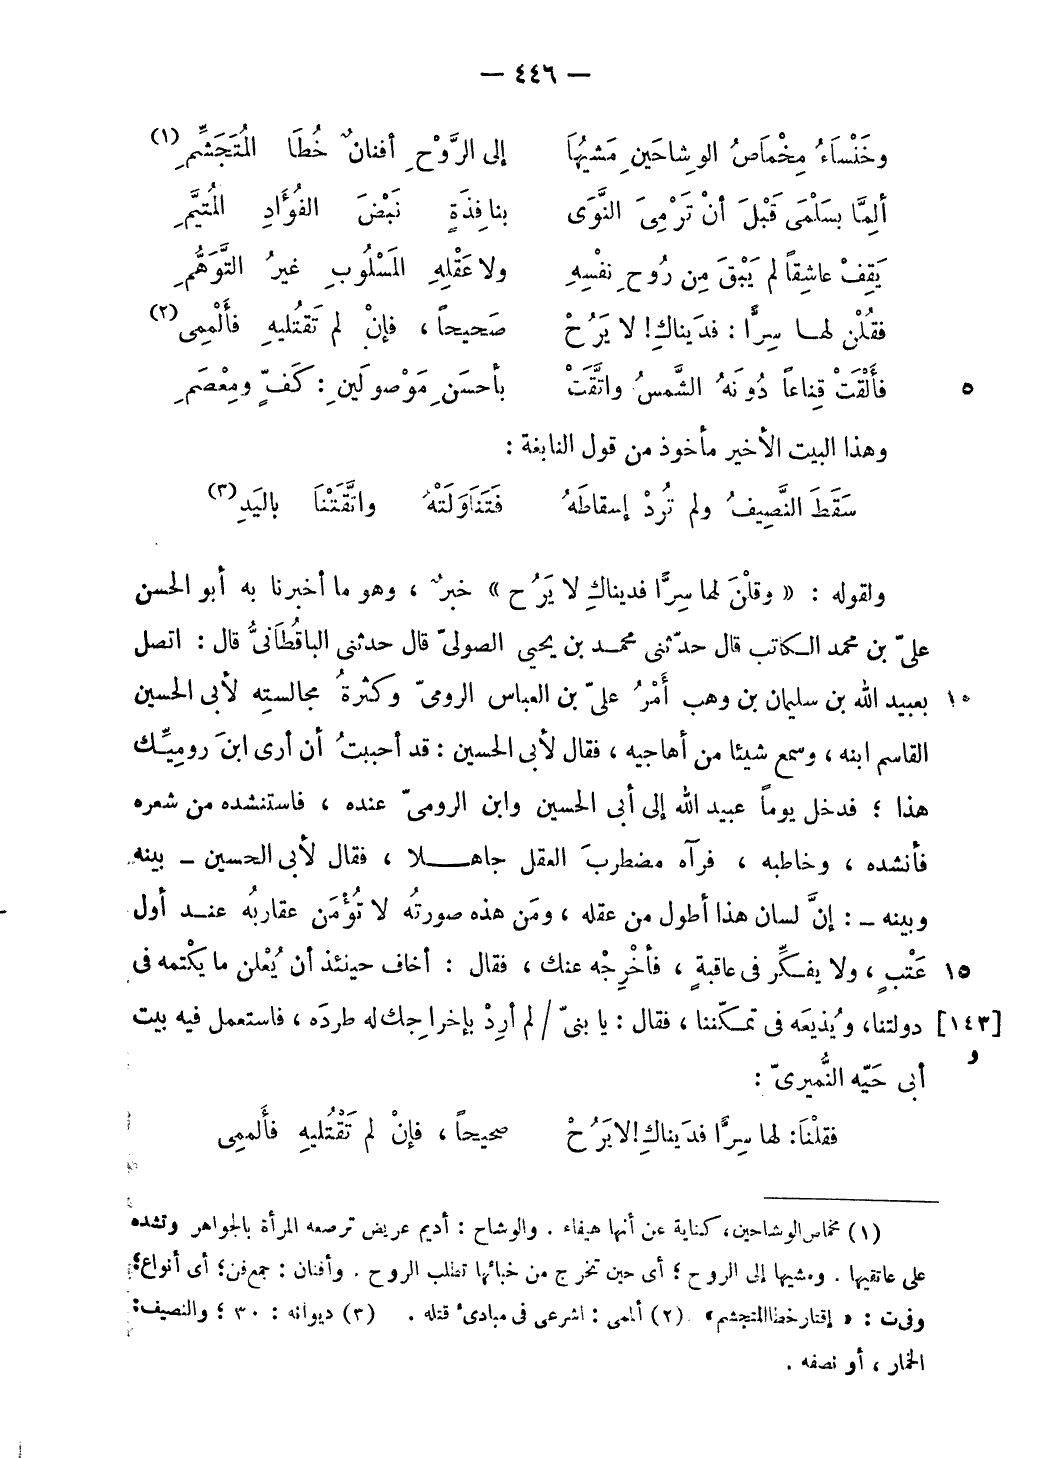 — ٤٤٦ —
وخَنْسَاءُ مِخْمَاصُ الوِشاحَينِ مَشيُهَا إلى الرَّوْحِ أفنانٌ خُطَا المُتَجَشِّمِ (١)
ألِمَّا بسَلْمَى قَبْلَ أنْ تَرْمِىَ النَّوَى بنافِذَةٍ نَبْضَ الفُؤَادِ المُتيَّمِ
يَقِفْ عاشِقاً لم يَبْقَ مِن رُوحِ نفْسِهِ ولا عَقْلِهِ المَسْلُوبِ غيرُ التَّوَهُّمِ
فقُلْن لهـا سِرًّا : فدَيناكِ! لا يَرُحْ صَحيحاً ، فإنْ لم تَقتُليهِ فأَلْمِمى (٢)
٥ فأَلْقَتْ قِناعاً دُونَهُ الشَّمسُ واتَّقَتْ بأحسَنِ مَوْصولَينِ : كَفٍّ ومِعْصَمِ
وهذا البيت الأخير مأخوذ من قول النابغة :
سَقَطَ النَّصِيفُ ولم تُرِدْ إسقاطَهُ فَتَنَاوَلَتْهُ واتَّقَتْنَا باليَدِ (٣)
ولقوله : « وقلْنَ لها سِرًّا فديناكِ لا يَرُح » خبرٌ ، وهو ما أخبرنا به أبو الحسن
علىّ بن محمد الـكاتب قال حدّثنى محمـد بن يحيى الصولىّ قال حدثنى الباقَطَانىُّ قال : اتصل
١٠ بعبيد الله بن سليمان بن وهب أَمْرُ علىّ بن العباس الرومىّ وكثرةُ مجالسته لأبى الحسين
القاسم ابنه ، وسمع شيئا من أهاجيه ، فقال لأبى الحسين : قد أحببتُ أن أرى ابنَ روميِّـك
هذا ؛ فدخل يوماً عبيد الله إلى أبى الحسين وابن الرومىّ عنده ، فاستنشده من شعره
فأنشده ، وخاطبه ، فرآه مضطربَ العقل جاهـلا ، فقال لأبى الحسين ـ بينه
وبينه ـ : إنَّ لسان هذا أطول من عقله ، ومَن هذه صورتُه لا تُؤْمَن عقاربُه عنـد أول
١٥ عَتْبٍ ، ولا يفـكِّر فى عاقبةٍ ، فأخْرِجْه عنك ، فقال : أخاف حينئذ أن يُعْلن ما يكْتمه فى
[١٤٣] دولتنا، ويُذيعَه فى تمـكّننا ، فقال : يا بنىّ / لم أرِدْ بإخراجك له طردَه ، فاستعمل فيه بيت
و
أبى حَيّه النُّميرىّ :
فقلْنَا: لها سِرًّا فدَيناكِ! لا يَرُحْ صحيحاً ، فإنْ لم تَقْتُليهِ فأَلممى
(١) مخماص الوشاحين، كناية عن أنها هيفاء . والوشاح : أديم عريض ترصعه المرأة بالجواهر وتشده
على عاتقيها . ومشيها إلى الروح ؛ أى حين تخرج من خبائها تطلب الروح . وأفنان : جمع فن؛ أى أنواع؛
وفى ت : « إقتار خطا المتجشم » . (٢) ألمى : اشرعى فى مبادىء قتله . (٣) ديوانه : ٣٠ ؛ والنصيف:
الخمار ، أو نصفه .